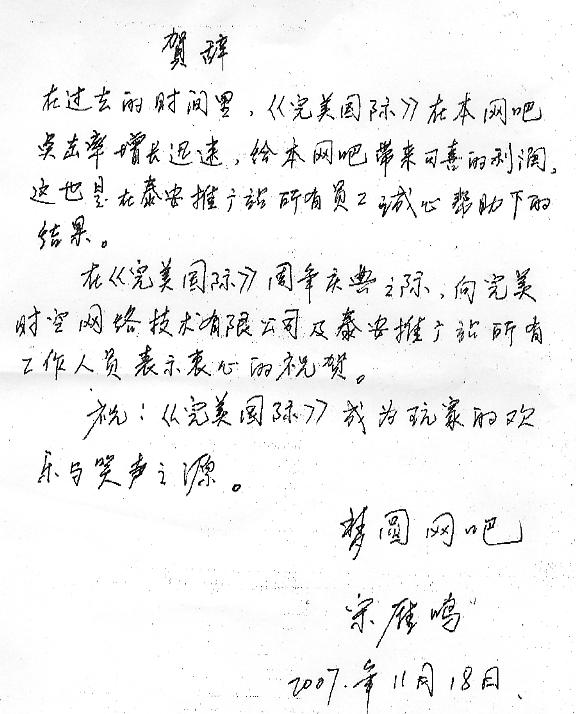 贺辞
在过去的时间里，《完美国际》在本网吧
点击率增长迅速，给本网吧带来可喜的利润，
这也是在泰安推广站所有员工诚心帮助下的
结果。
在《完美国际》周年庆典之际，向完美
时空网络技术有限公司及泰安推广站所有
工作人员表示衷心的祝贺。
祝：《完美国际》成为玩家的欢
乐与笑声之源。
梦圆网吧
宋雁鸣
2007.年11月18日.